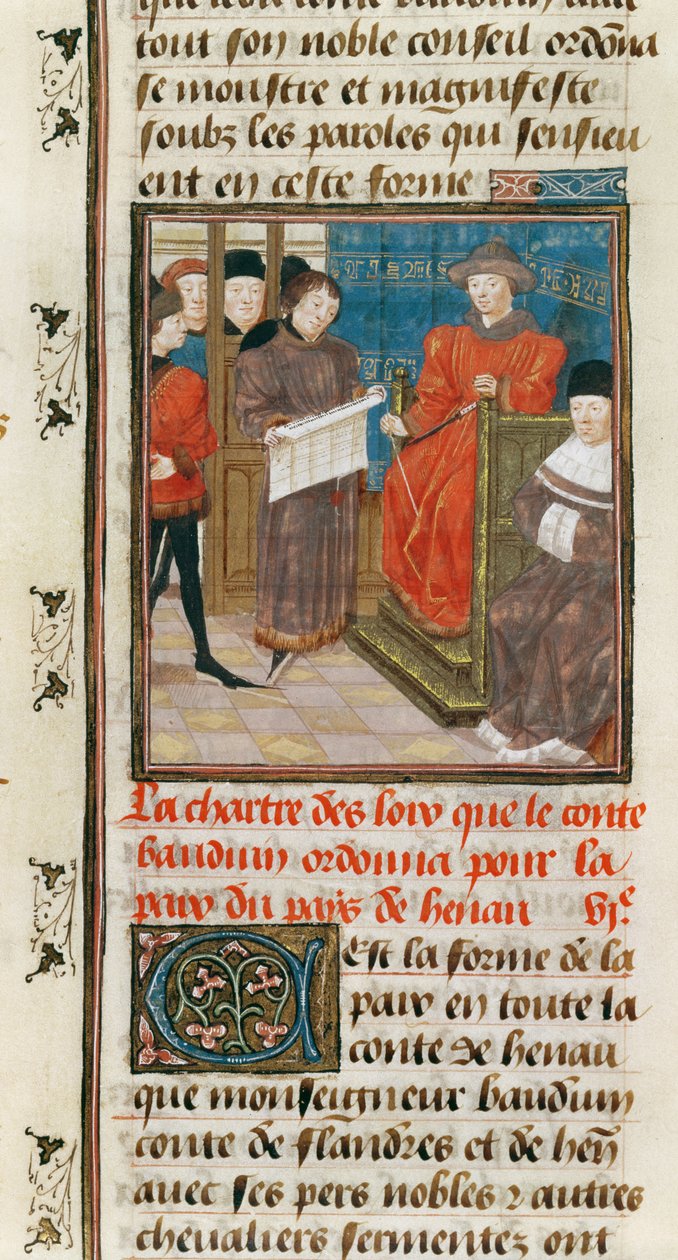 tout son noble conseil ordōna
se monstre et magnifeste
soubz les paroles qui sensieu
ent en ceste forme
La chartre des loix que le conte
bauduin ordonna pour la
paix du pays de henau vjᵉ
Cest la forme de la
paix en toute la
conte de henau
que monseigneur bauduin
conte de flandres et de hen̄
auec ses pers nobles ⁊ autres
cheualiers sermentez ont